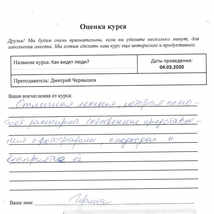 Оценка курса
Друзья! Мы будем очень признательны, если вы уделите несколько минут, для
заполнения анкеты. Мы хотим сделать наш курс еще интереснее и продуктивнее.
Название курса: Как видят люди?
Дата проведения:
04.03.2020
Преподаватель: Дмитрий Чернышов
Ваши впечатления от курса:
Отличная лекция, которая помо-
гает расширить собственные представле-
ния
и
Ваше имя